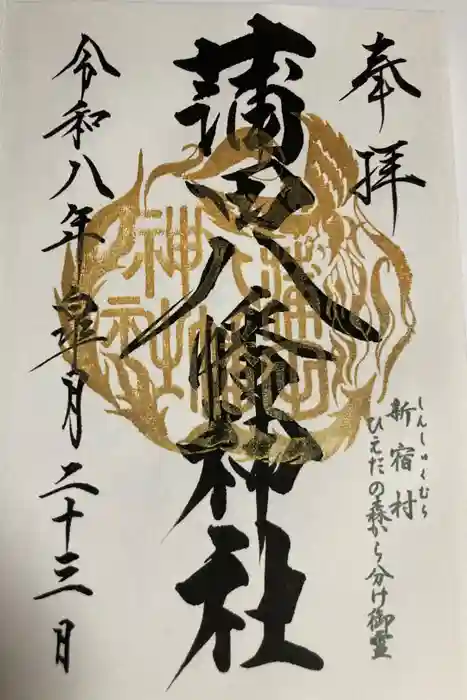 奉拝
しんしゅくむら
新宿村
ひえだの森から分け御霊
蒲田八幡神社
蒲田八幡神社
令和八年皐月二十三日